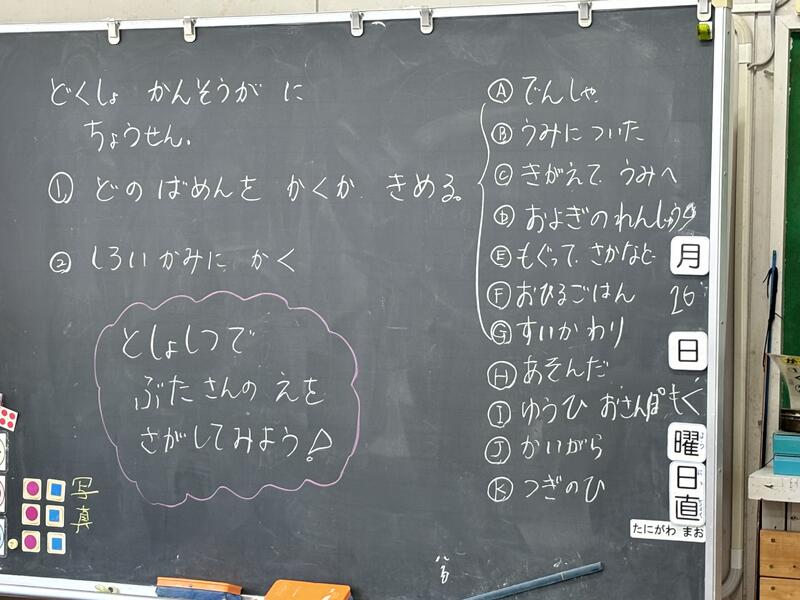 どくしょ かんそうが に
ちょうせん。
① どの ばめんを かくか きめる。
② しろい かみに かく
としょしつで
ぶたさんの えを
さがしてみよう!
写真
Ⓐ でんしゃ
Ⓑ うみに ついた
Ⓒ きがえて うみへ
Ⓓ およぎの れんしゅう
Ⓔ もぐって さかなと
Ⓕ おひるごはん
Ⓖ すいか わり
Ⓗ あそんだ
Ⓘ ゆうひ おさんぽ
Ⓙ かいがら
Ⓚ つぎのひ
月
26
日
もく
曜
よう
日直
にっちょく
たにがわ まお